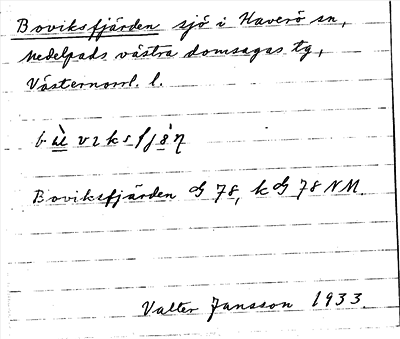 Boviksfjärden sjö i Haverö sn,
Medelpads västra domsagas tg,
Västernorrl. l.
Boviksfjärden G 78, k G 78 NM.
Valter Jansson 1933.